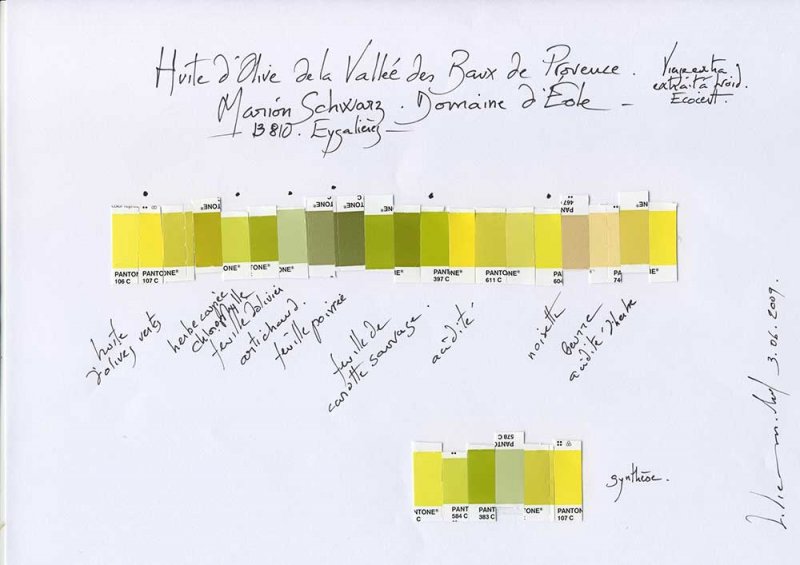 Huile d'Olive de la Vallée des Baux de Provence.
Marion Schwarz. Domaine d'Éole
13810. Eygalières
Vierge extra
extrait à froid.
Ecocert.
PANTONE®
106 C
PANTONE®
107 C
NE®
ONE®
TONE®
ONE®
NE®
PANTONE®
397 C
PANTONE®
611 C
PAN
604
PANT
467
PA
74
huile
d'olives verts
herbe coupée
chlorophylle
feuille d'olivier
artichaud.
feuille poivrée
feuille de
carotte sauvage.
acidité
noisette
beurre
acidité d'herbe
578 C
PANTO
TONE®
C
PANT
584 C
PANT
383 C
ONE®
PANTONE®
107 C
synthèse.
3.06.2009.